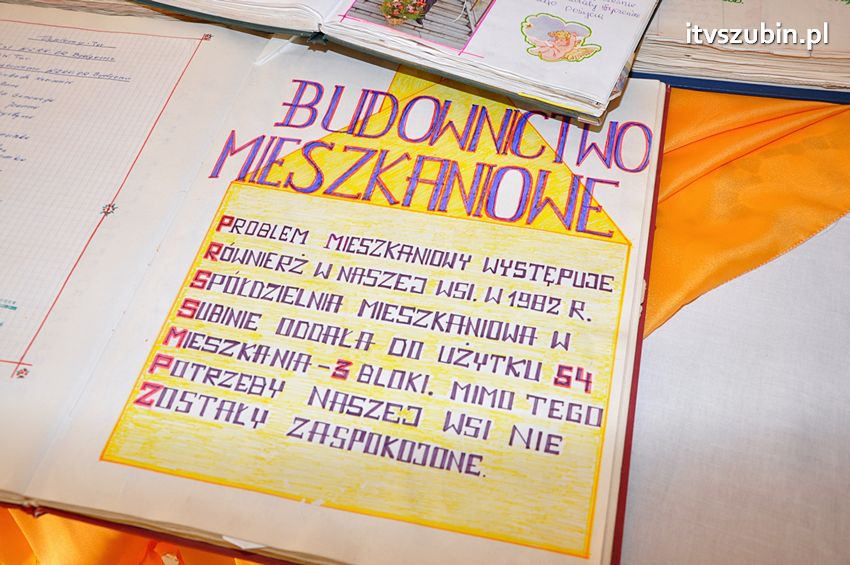 itvszubin.pl
BUDOWNICTWO
MIESZKANIOWE
PROBLEM MIESZKANIOWY WYSTĘPUJE
RÓWNIERZ W NASZEJ WSI. W 1982 R.
SPÓŁDZIELNIA MIESZKANIOWA W
SUBINIE ODDAŁA DO UŻYTKU 54
MIESZKANIA - 3 BLOKI. MIMO TEGO
POTRZEBY NASZEJ WSI NIE
ZOSTAŁY ZASPOKOJONE.